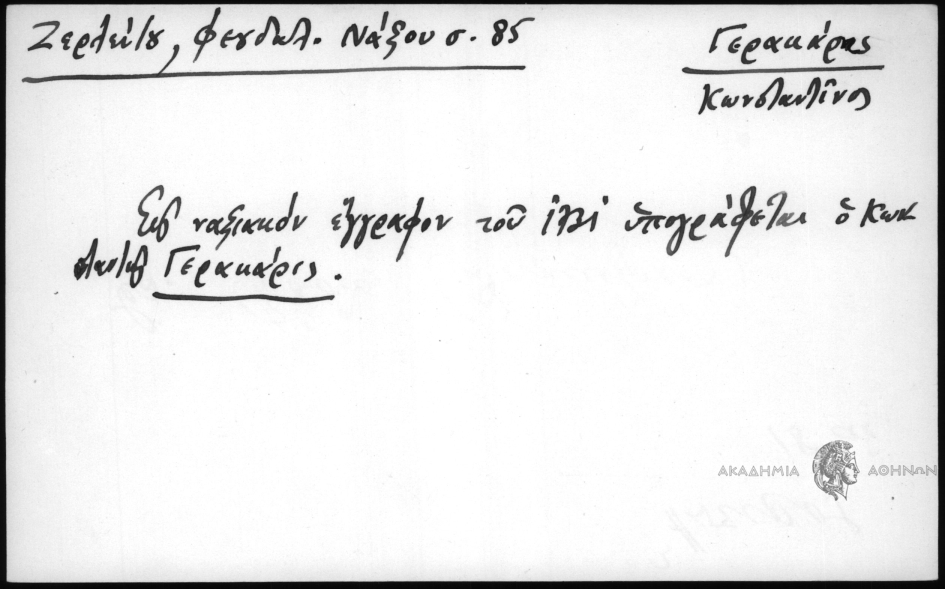 Ζερλέντου, Φευδαλ. Νάξου σ. 85
Γερακάρης
Κωνσταντῖνος
Εἰς ναξιακὸν ἔγγραφον τοῦ ὑπογράφεται ὁ Κων
σταντῆς Γερακάρης.
ΑΚΑΔΗΜΙΑ ΑΘΗΝΩΝ